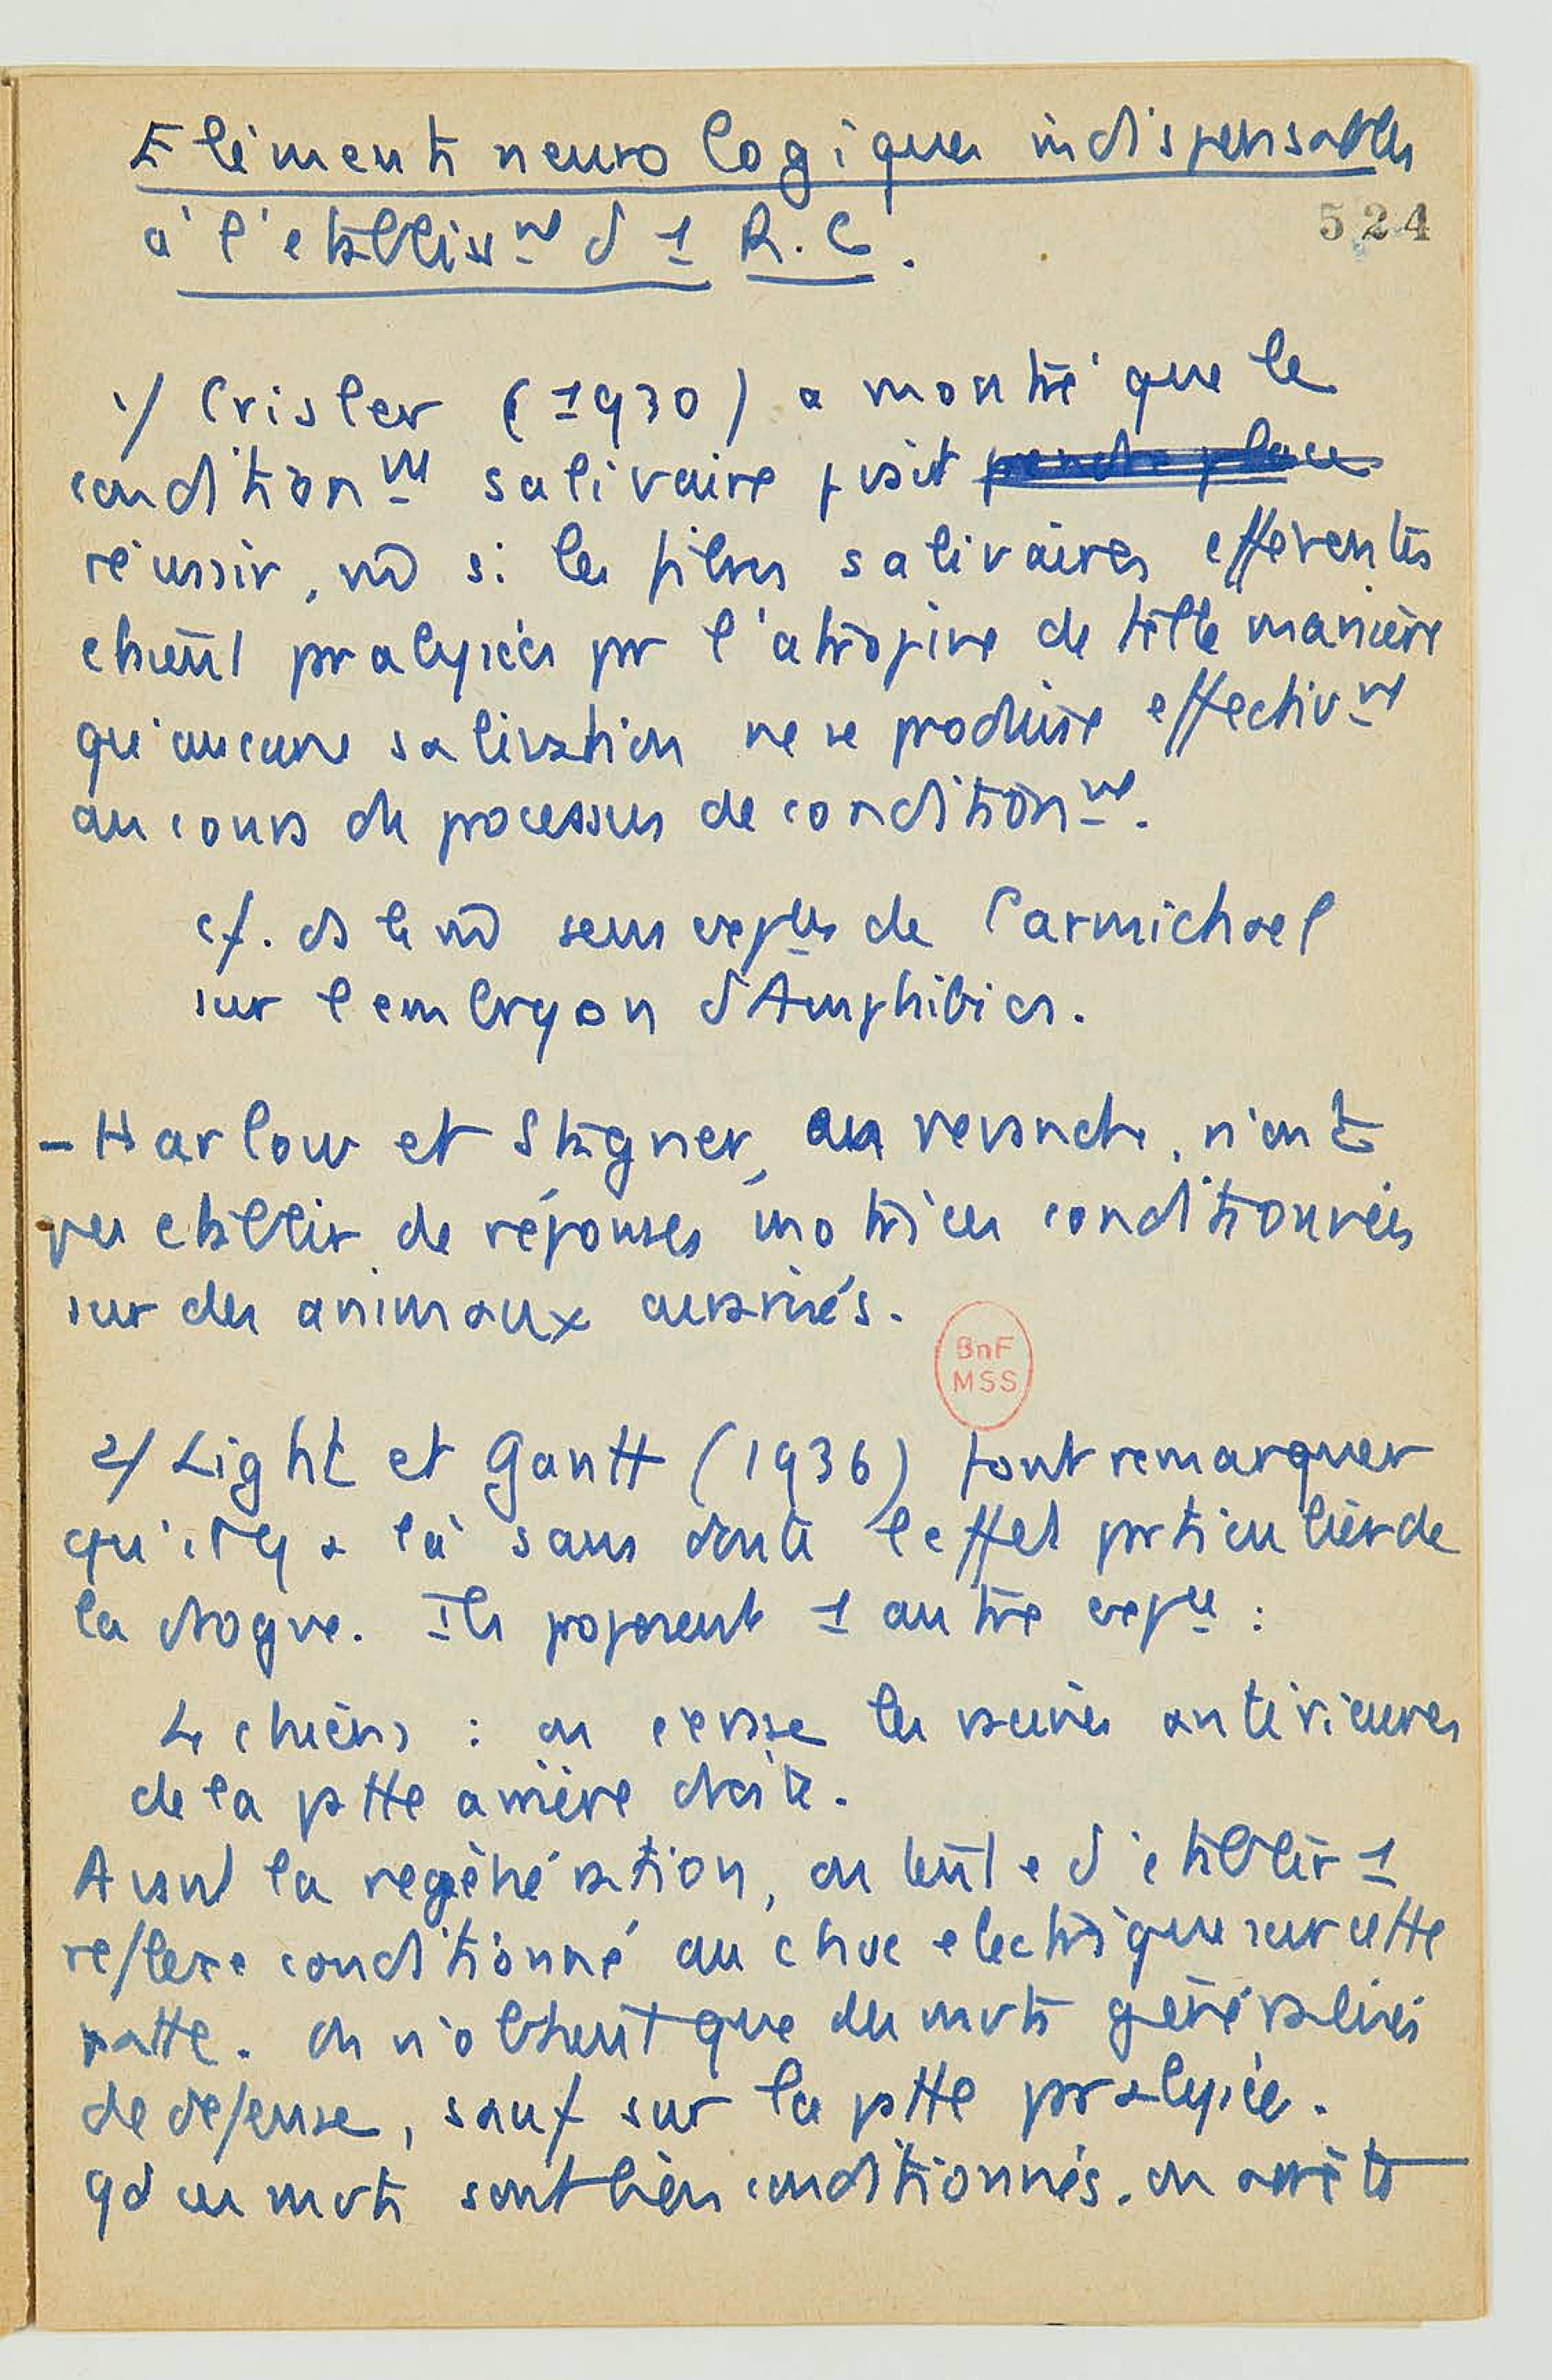 Eléments neurologiques indispensables
à l'établissmt d 1 R.C.
524
1/ Crisler (1930) a montré que le
conditionmt salivaire pvait prendre place
réussir, m̂ si les fibres salivaires efférentes
étaient pralysées pr l'atropine de telle manière
qu'aucune salivation ne se produise effectivmt
au cours du processus de conditionmt.
cf. ds le m̂ sens expces de Carmichael
sur l'embryon d'Amphibies.
- Harlow et Stagner, en revanche, n'ont
pu établir de réponses motrices conditionnées
sur des animaux curarisés.
BnF
MSS
2/ Light et Gantt (1936) font remarquer
qu'il y a là sans doute l'effet prticulier de
la drogue. Ils proposent 1 autre expce :
4 chiens : on écrase les racines antérieures
de la ptte arrière droite.
Avant la regénération, on tente d'établir 1
reflexe conditionné au choc electrique sur cette
patte. On n'obtient que des mvts généralisés
de défense, sauf sur la ptte pralysée.
qd ces mvts sont bien conditionnés. on arrête